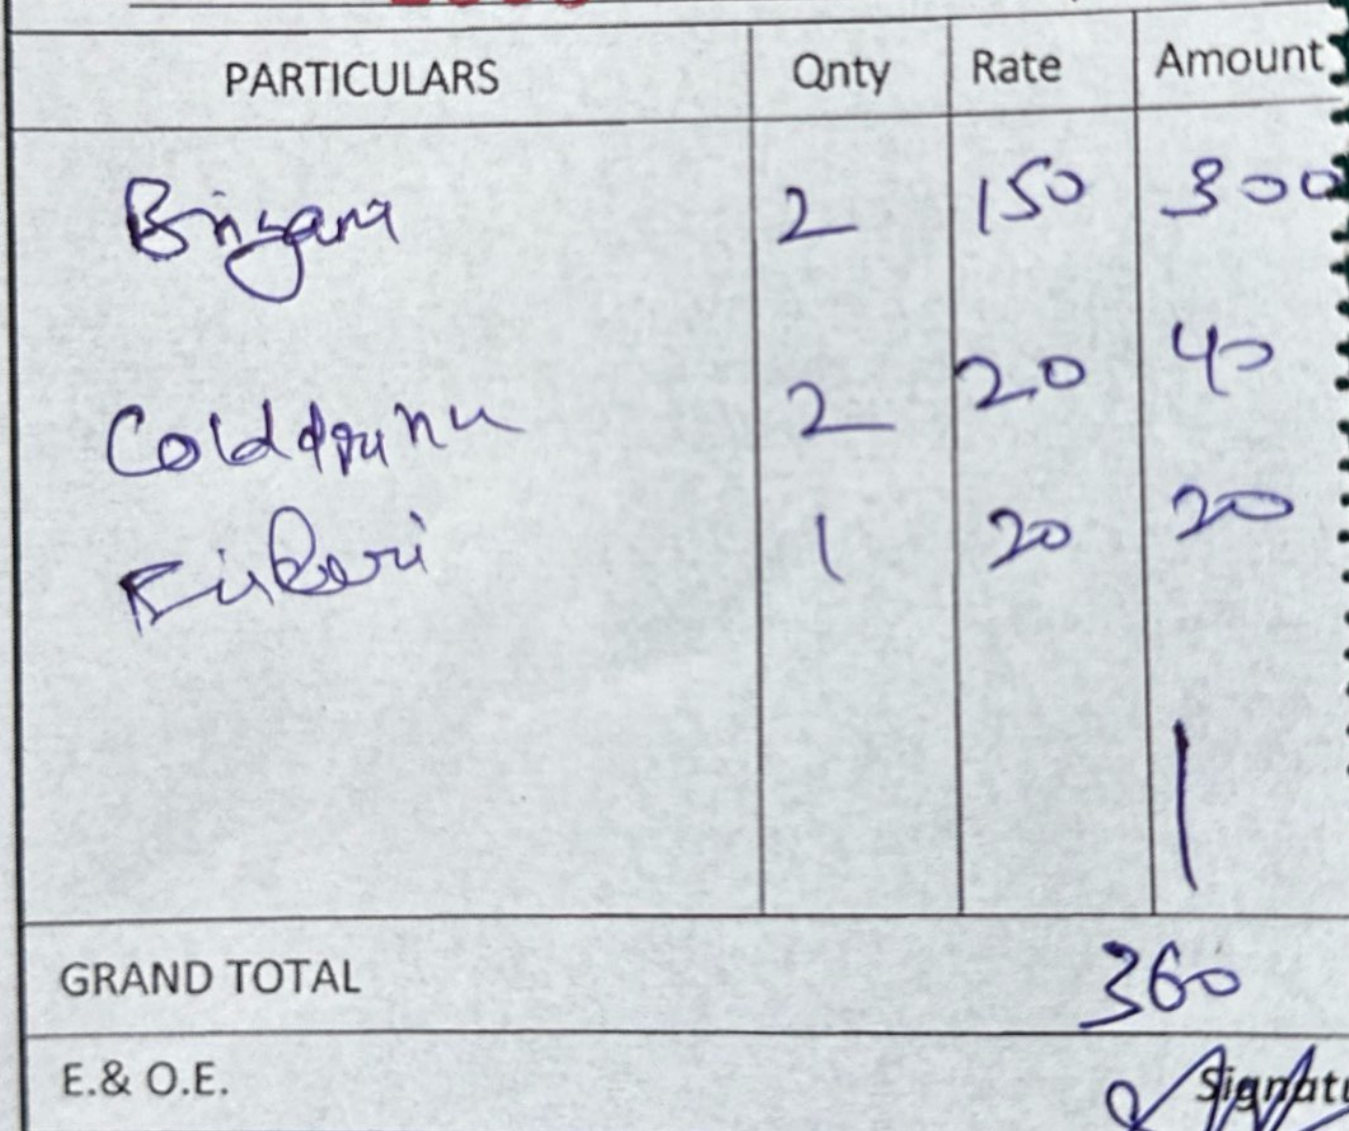 PARTICULARS Qnty Rate Amount
Biryani 2 150 300
Cold drink 2 20 40
1 20 20
GRAND TOTAL 360
E.& O.E.